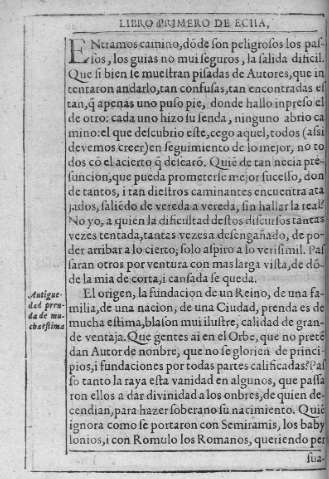 LIBRO PRIMERO DE ECIIA,
ENtramos camino, dōde son peligrosos los pas-
sos, los guias no mui seguros, la salida dificil.
Que si bien se muestran pisadas de Autores, que in
tentaron andarlo, tan confusas, tan encontradas es
tan, q̃ apenas uno puso pie, donde hallo inpreso el
de otro: cada uno hizo su senda, ninguno abrio ca
mino: el que descubrio este, cego aquel, todos (assi
devemos creer) en seguimiento de lo mejor, no to
dos cō el acierto q̃ desearō. Quiē de tan necia pre-
suncion, que pueda prometerse mejor sucesso, don
de tantos, i tan diestros caminantes encuentra ata
jados, saliēdo de vereda a vereda, sin hallar la real?
No yo, a quien la dificultad destos discursos tantas
vezes tentada, tantas vezes a desengañado, de po-
der arribar a lo cierto, solo aspiro a lo verisimil. Pas
saran otros por ventura con mas larga vista, de dō-
de la mia de corta, i cansada se queda.
Antigue-
dad pren-
da de mu-
cha estima
El origen, la fundacion de un Reino, de una fa-
milia, de una nacion, de una Ciudad, prenda es de
mucha estima, blason mui ilustre, calidad de gran-
de ventaja. Que gentes ai en el Orbe, que no pretē
dan Autor de nonbre, que no se glorien de princi-
pios, i fundaciones por todas partes calificadas? Pas
so tanto la raya esta vanidad en algunos, que passa
ron ellos a dar divinidad a los onbres, de quien de-
cendian, para hazer soberano su nacimiento. Quiē
ignora como se portaron con Semiramis, los baby
lonios, i con Romulo los Romanos, queriendo per
sua-